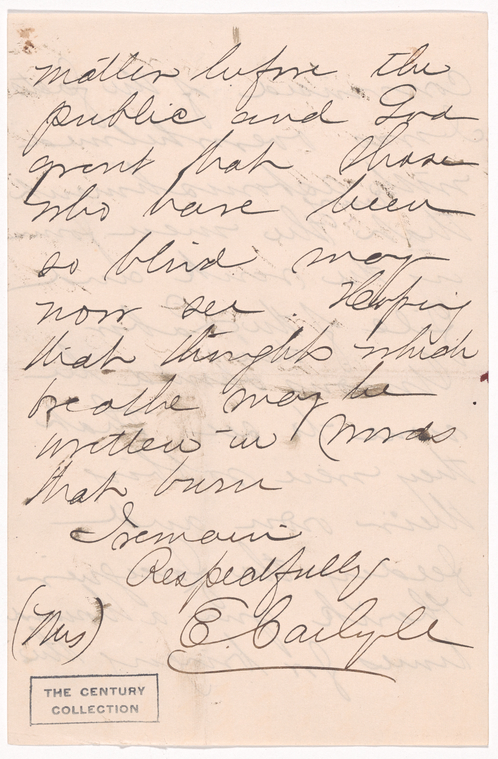 matter before the
public and God
grant that those
who have been
so blind may
now see. Hoping
that thoughts which
breathe may be
written in words
that burn
I remain
Respectfully
(Mrs) E. Carlyle
THE CENTURY
COLLECTION